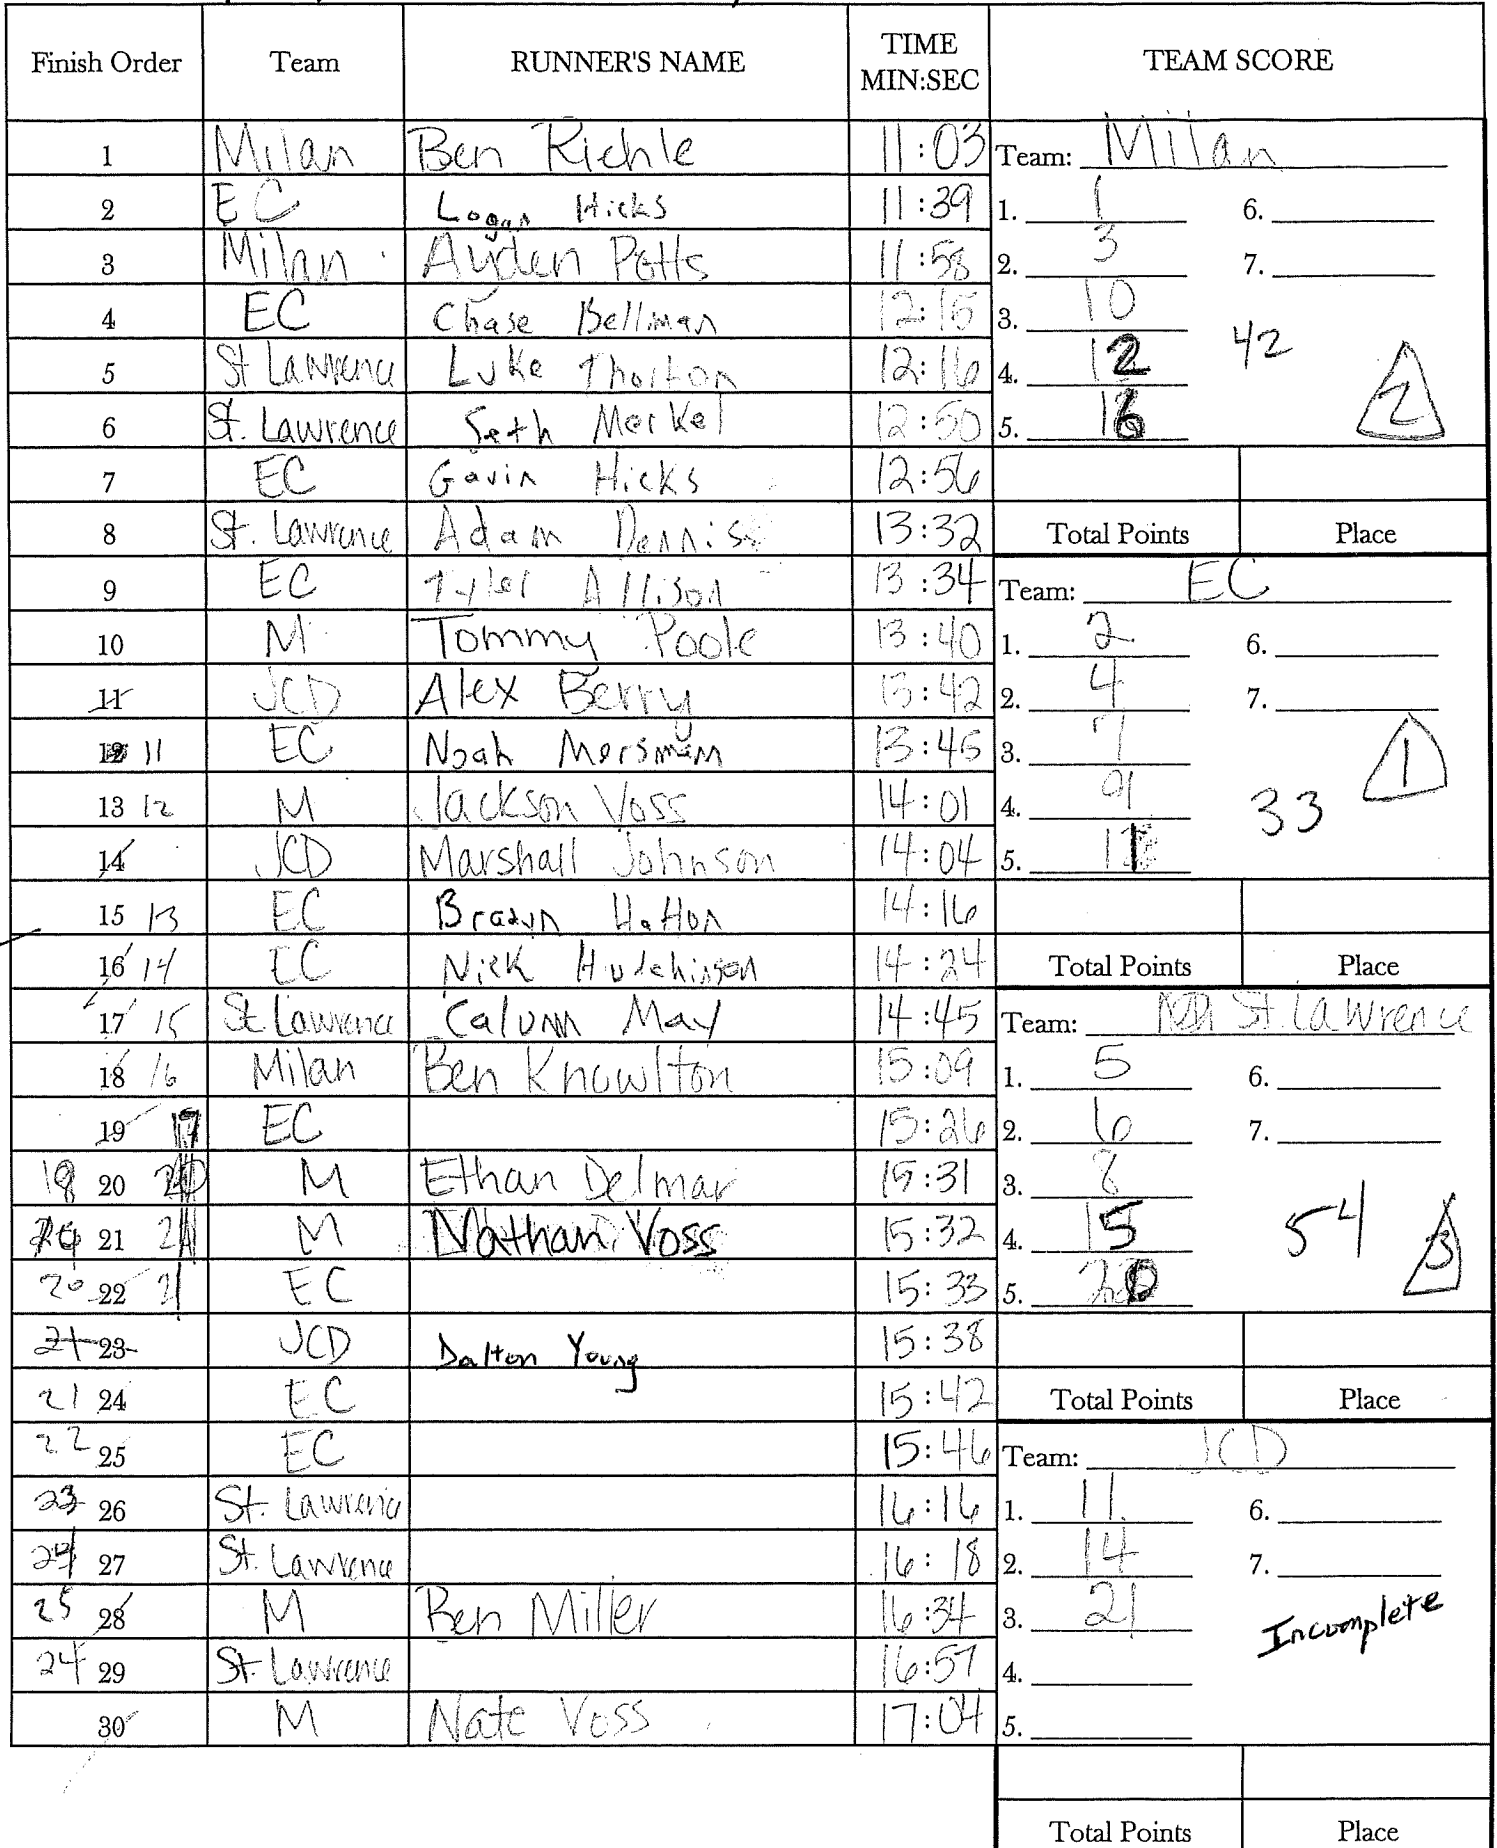 Finish Order Team RUNNER'S NAME TIME MIN:SEC TEAM SCORE
1 Milan Ben Riehle 11:03
2 EC Logan Hicks 11:39
3 Milan Ayden Potts 11:58
4 EC Chase Bellman 12:15
5 St Lawrence Luke Thorton 12:16
6 St. Lawrence Seth Merkel 12:50
7 EC Gavin Hicks 12:56
8 St. Lawrence Adam Dennis 13:32
9 EC Tyler Allison 13:34
10 M Tommy Poole 13:40
11 JCD Alex Berry 13:42
12 11 EC Noah Mersmann 13:45
13 12 M Jackson Voss 14:01
14 JCD Marshall Johnson 14:04
15 13 EC Hatton 14:16
16 14 EC Nick Hutchinson 14:24
17 15 St Lawrence Calumn May 14:45
18 16 Milan Ben Knowlton 15:09
19 17 EC 15:26
20 M Ethan Delmar 15:31
21 M Nathan Voss 15:32
20 22 21 EC 15:33
21 23 JCD Dalton Young 15:38
21 24 EC 15:42
22 25 EC 15:46
23 26 St. Lawrence 16:16
27 St. Lawrence 16:18
25 28 M Ben Miller 16:34
24 29 St. Lawrence 16:57
30 M Nate Voss 17:04
Team: Milan
1. 1 6.
2. 3 7.
3. 10
4. 12
5. 16
42
2
Total Points Place
Team: EC
1. 2 6.
2. 4 7.
3. 7
4. 9
5. 11
33
1
Total Points Place
Team: St. Lawrence
1. 5 6.
2. 6 7.
3. 8
4. 15
5. 20
54
3
Total Points Place
Team: JCD
1. 11 6.
2. 14 7.
3. 21
4.
5.
Incomplete
Total Points Place